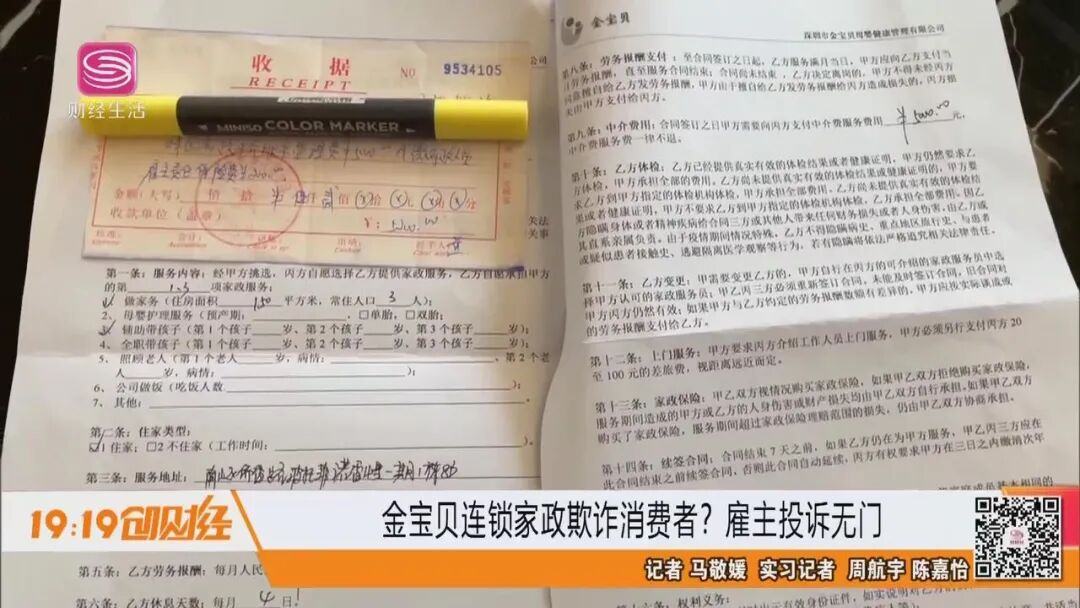 财经生活
收 据
RECEIPT
NO 9534105
MINISO COLOR MARKER
金额(大写) 佰 拾
收款单位(盖章)
第一条:服务内容:经甲方挑选,丙方自愿选择乙方提供家政服务,乙方自愿承担甲方
的第 1.3 项家政服务:
做家务(住房面积 150 平方米,常住人口 3 人);
2、母婴护理服务(预产期: 、□单胎;□双胎;
辅助带孩子(第1个孩子 岁、第2个孩子 岁、第3个孩子 岁);
4、全职带孩子(第1个孩子 岁、第2个孩子 岁、第3个孩子 岁);
5、照顾老人(第1个老人 岁,病情: 、第2个老
人 岁,病情: );
6、公司做饭(吃饭人数 );
7、其他:
第二条:住家类型:
1住家;□2不住家(工作时间:
第三条:服务地址:
第五条:乙方劳务报酬:每月人民
第六条:乙方休息天数:每月 4 日!
金宝贝
深圳市金宝贝母婴健康管理有限公司
第八条:劳务报酬支付:至合同签订之日起,乙方服务满月当日,甲方应向乙方支付当
月劳务报酬,直至服务合同结束;合同尚未结束,乙方决定离岗的,甲方不得未经丙方
同意擅自给乙方发劳务报酬,甲方由于擅自给乙方发劳务报酬给丙方造成损失的,丙方损
失由甲方支付给丙方。
第九条:中介费用:合同签订之日甲方需要向丙方支付中介费服务费用 ¥5000.00 元,
中介费服务费一律不退。
第十条:乙方体检:乙方已经提供真实有效的体检结果或者健康证明,甲方仍然要求乙
方体检,甲方承担全部的费用。乙方尚未提供真实有效的体检结果或者健康证明,甲方要
求乙方到甲方指定的体检机构体检,甲方承担全部费用。乙方尚未提供真实有效的体检结
果或者健康证明,甲方不要求乙方到甲方指定的体检机构体检,乙方承担全部费用。因乙
方隐瞒身体或者精神疾病给合同三方或其他人带来任何财务损失或者人身伤害,由乙方或
其直系亲属负责。由于疫情期间情况特殊,乙方不得隐瞒病史、重点地区旅行史、与患者
或疑似患者接触史、逃避隔离医学观察等行为,若有隐瞒将依法严格追究相关法律责任。
第十一条:乙方变更:甲需要变更乙方的,甲方自行在丙方的可介绍的家政服务员中选
择甲方认可的家政服务员;甲乙丙三方必须重新签订合同,未能及时签订合同,旧合同对
甲方丙方仍然有效;如果甲方与乙方约定的劳务报酬数额有差异的,甲方应按实际谈成或
的劳务报酬支付给乙方。
第十二条:上门服务:甲方要求丙方介绍工作人员上门服务,甲方必须另行支付丙方20
至100元的差旅费,视距离远近而定。
第十三条:家政保险:甲乙双方视情况购买家政保险,如果甲乙双方拒绝购买家政保险,
服务期间造成的甲方或乙方的人身伤害或财产损失均由甲乙双方自行承担。如果甲乙双方
购买了家政保险,服务期间超过家政保险理赔范围的损失,仍由甲乙双方协商承担。
第十四条:续签合同:合同结束7天之前,如果乙方仍在为甲方服务,甲乙丙三方应在
此合同结束之前续签合同,否则此合同自动延续,丙方有权要求甲方在三日之内缴清次年
第十六条:权利义务:
19:19创财经
金宝贝连锁家政欺诈消费者?雇主投诉无门
记者 马敬媛 实习记者 周航宇 陈嘉怡